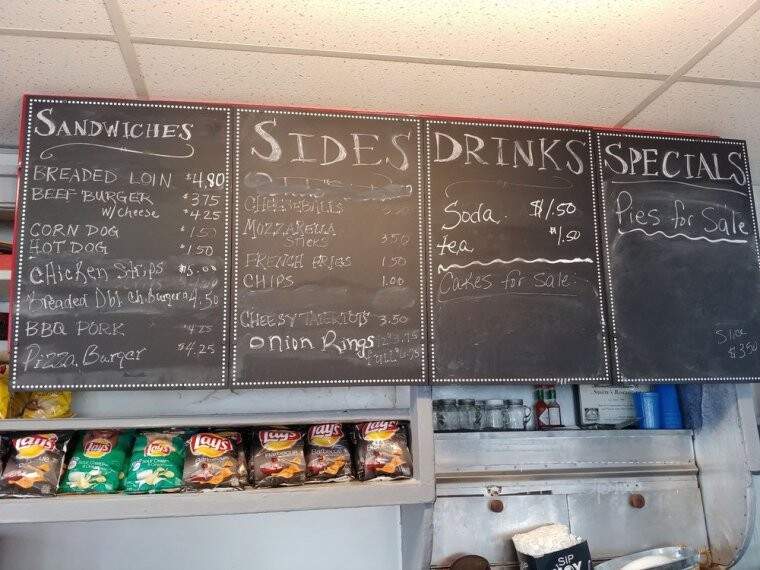 SANDWICHES
BREADED LOIN $4.90
BEEF BURGER $3.75
w/cheese $4.25
CORN DOG $1.50
HOT DOG $1.50
CHicken Strips $5.00
Breaded Dbl Ch. Burger 4.50
BBQ PORK $4.25
Pizza Burger $4.25
SIDES
CHEESEBALLS
MOZZARELLA
STICKS 3.50
FRENCH FRIES 1.50
CHIPS 1.00
CHEESY TATERTOTS 3.50
Onion Rings
DRINKS
Soda. $1.50
tea $1.50
Cakes for Sale.
SPECIALS
Pies for Sale
Slice
$3.50
Lay's
Lay's
Lay's
Lay's
Barbecue
Lay's
Barbecue
Lay's
Barbecue
Lay's
SIP